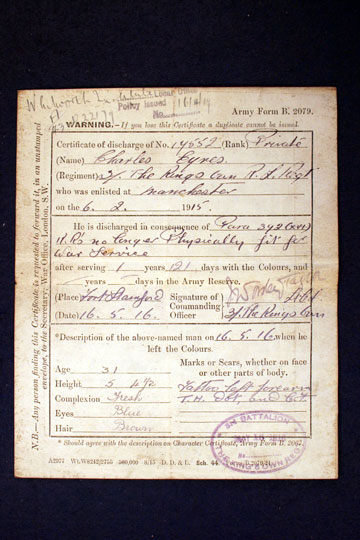 Whitworth Institute
Local Office
Policy Issued 16/6/17
Army Form B. 2079.
WARNING.—If you lose this Certificate a duplicate cannot be issued.
Certificate of discharge of No. 14552 (Rank) Private
(Name) Charles Eyres
(Regiment) 3/ The Kings Own R. L. Regt
who was enlisted at Manchester
on the 6. 2. 1915.
He is discharged in consequence of Para 392 (XVI)
K.R. no longer Physically fit for
War Service
after serving 1 years 121 days with the Colours, and
years days in the Army Reserve.
(Place) Fort Stamford Signature of
Commanding
(Date) 16. 5. 16 Officer 3/ The Kings Own
*Description of the above-named man on 16. 5. 16 when he
left the Colours.
Age 31
Height 5 4½
Complexion Fresh
Eyes Blue
Hair Brown
Marks or Scars, whether on face
or other parts of body.
Tattoo left forearm
* Should agree with the description on Character Certificate, Army Form B. 2067.
3RD BATTALION
THE KING'S OWN REGT
N.B.—Any person finding this Certificate is requested to forward it, in an unstamped
envelope, to the Secretary, War Office, London, S.W.